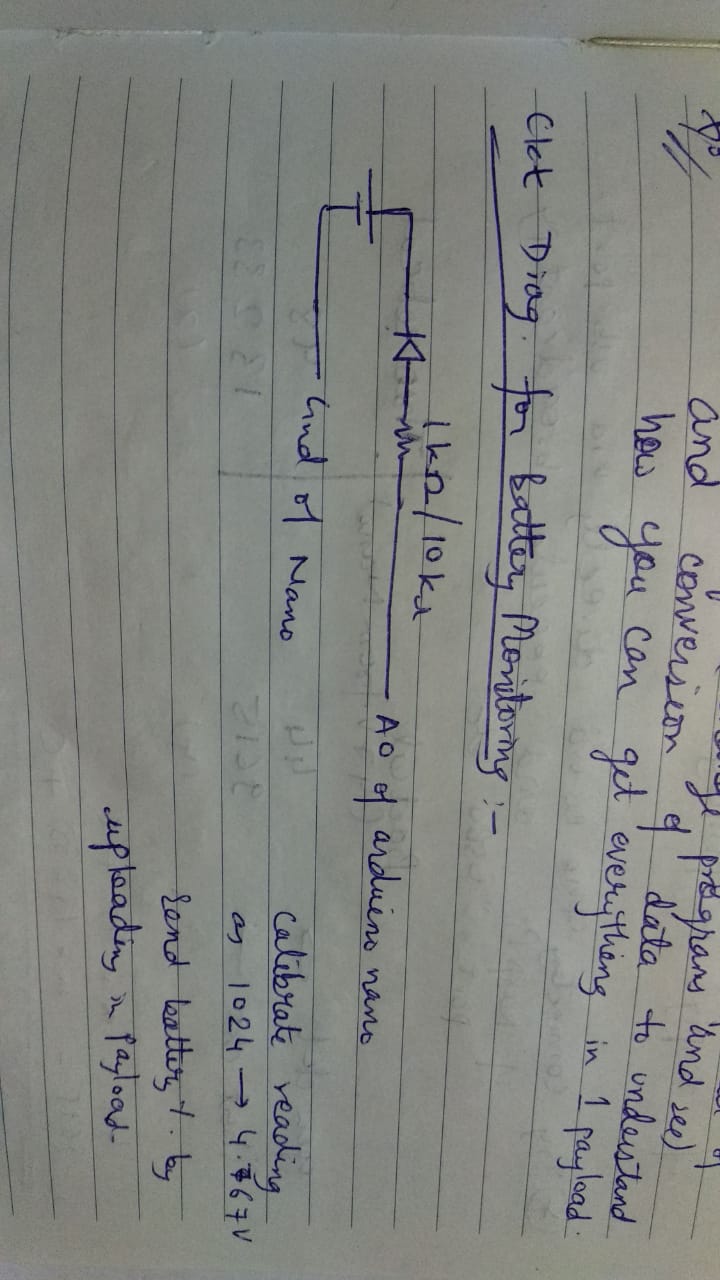 and conversion of data to understand
how you can get everything in 1 payload.
Ckt Diag. for battery Monitoring :-
1kΩ/10kΩ
A0 of arduino nano
Gnd of Nano
Calibrate reading
as 1024 → 4.67V
Send battery %. by
uploading in Payload.